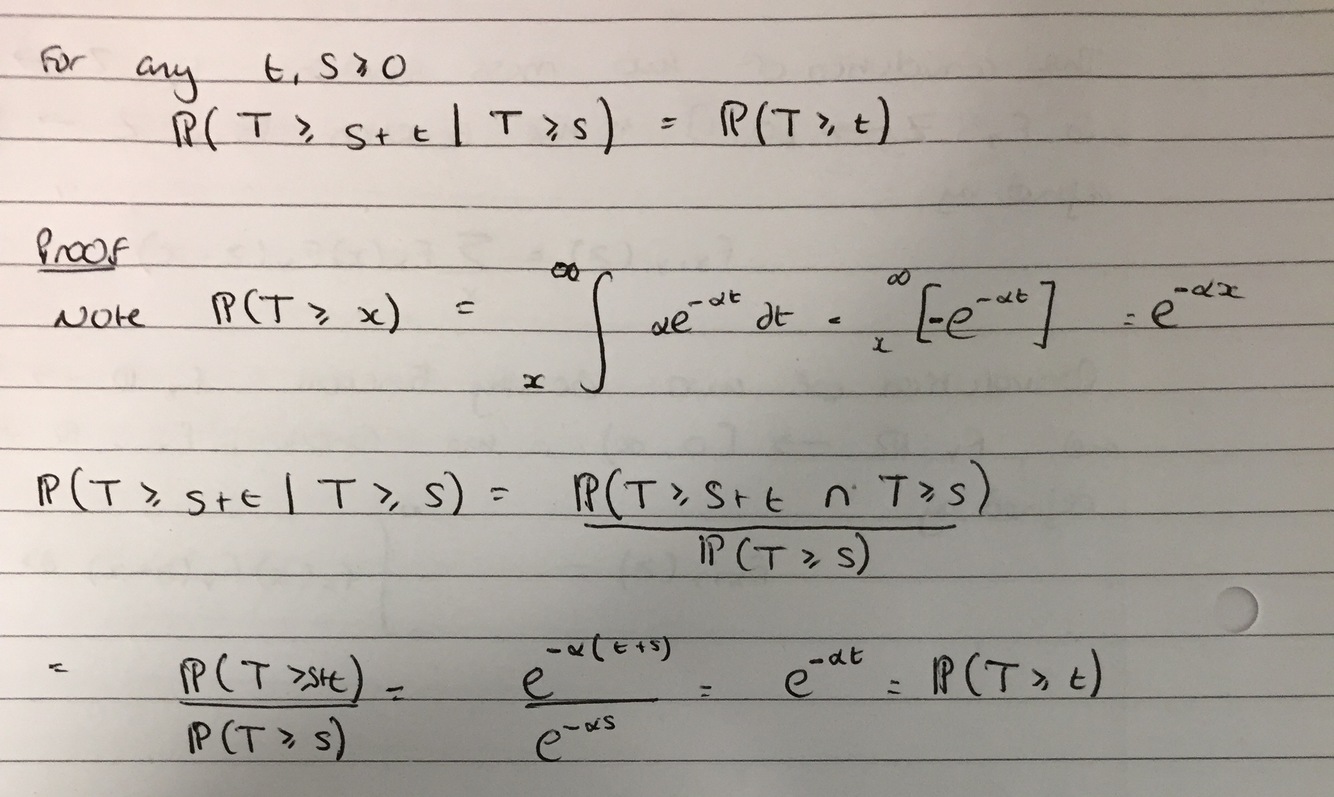 For any t, s ≥ 0
ℙ( T ≥ s+t | T ≥ s) = ℙ(T ≥ t)
Proof
Note ℙ(T ≥ x) = ∫_x^∞ αe^{-αt} dt = _x^∞[-e^{-αt}] = e^{-αx}
ℙ(T ≥ s+t | T ≥ s) = ℙ(T ≥ s+t ∩ T ≥ s) / ℙ(T ≥ s)
= ℙ(T ≥ s+t) / ℙ(T ≥ s) = e^{-α(t+s)} / e^{-αs} = e^{-αt} = ℙ(T ≥ t)